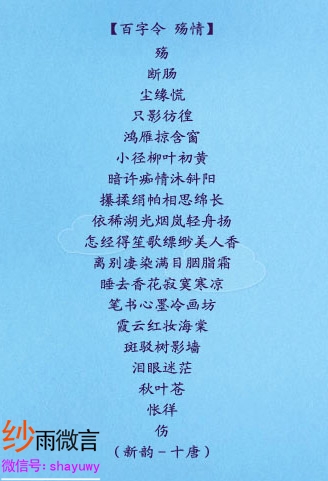 【百字令 殇情】
殇
断肠
尘缘慌
只影彷徨
鸿雁掠含窗
小径柳叶初黄
暗许痴情沐斜阳
攥揉绢帕相思绵长
依稀湖光烟岚轻舟扬
怎经得笙歌缥缈美人香
离别凄染满目胭脂霜
睡去香花寂寞寒凉
笔书心墨冷画坊
霞云红妆海棠
斑驳树影墙
泪眼迷茫
秋叶苍
怅徉
伤
（新韵－十唐）
纱雨微言
微信号：shayuwy